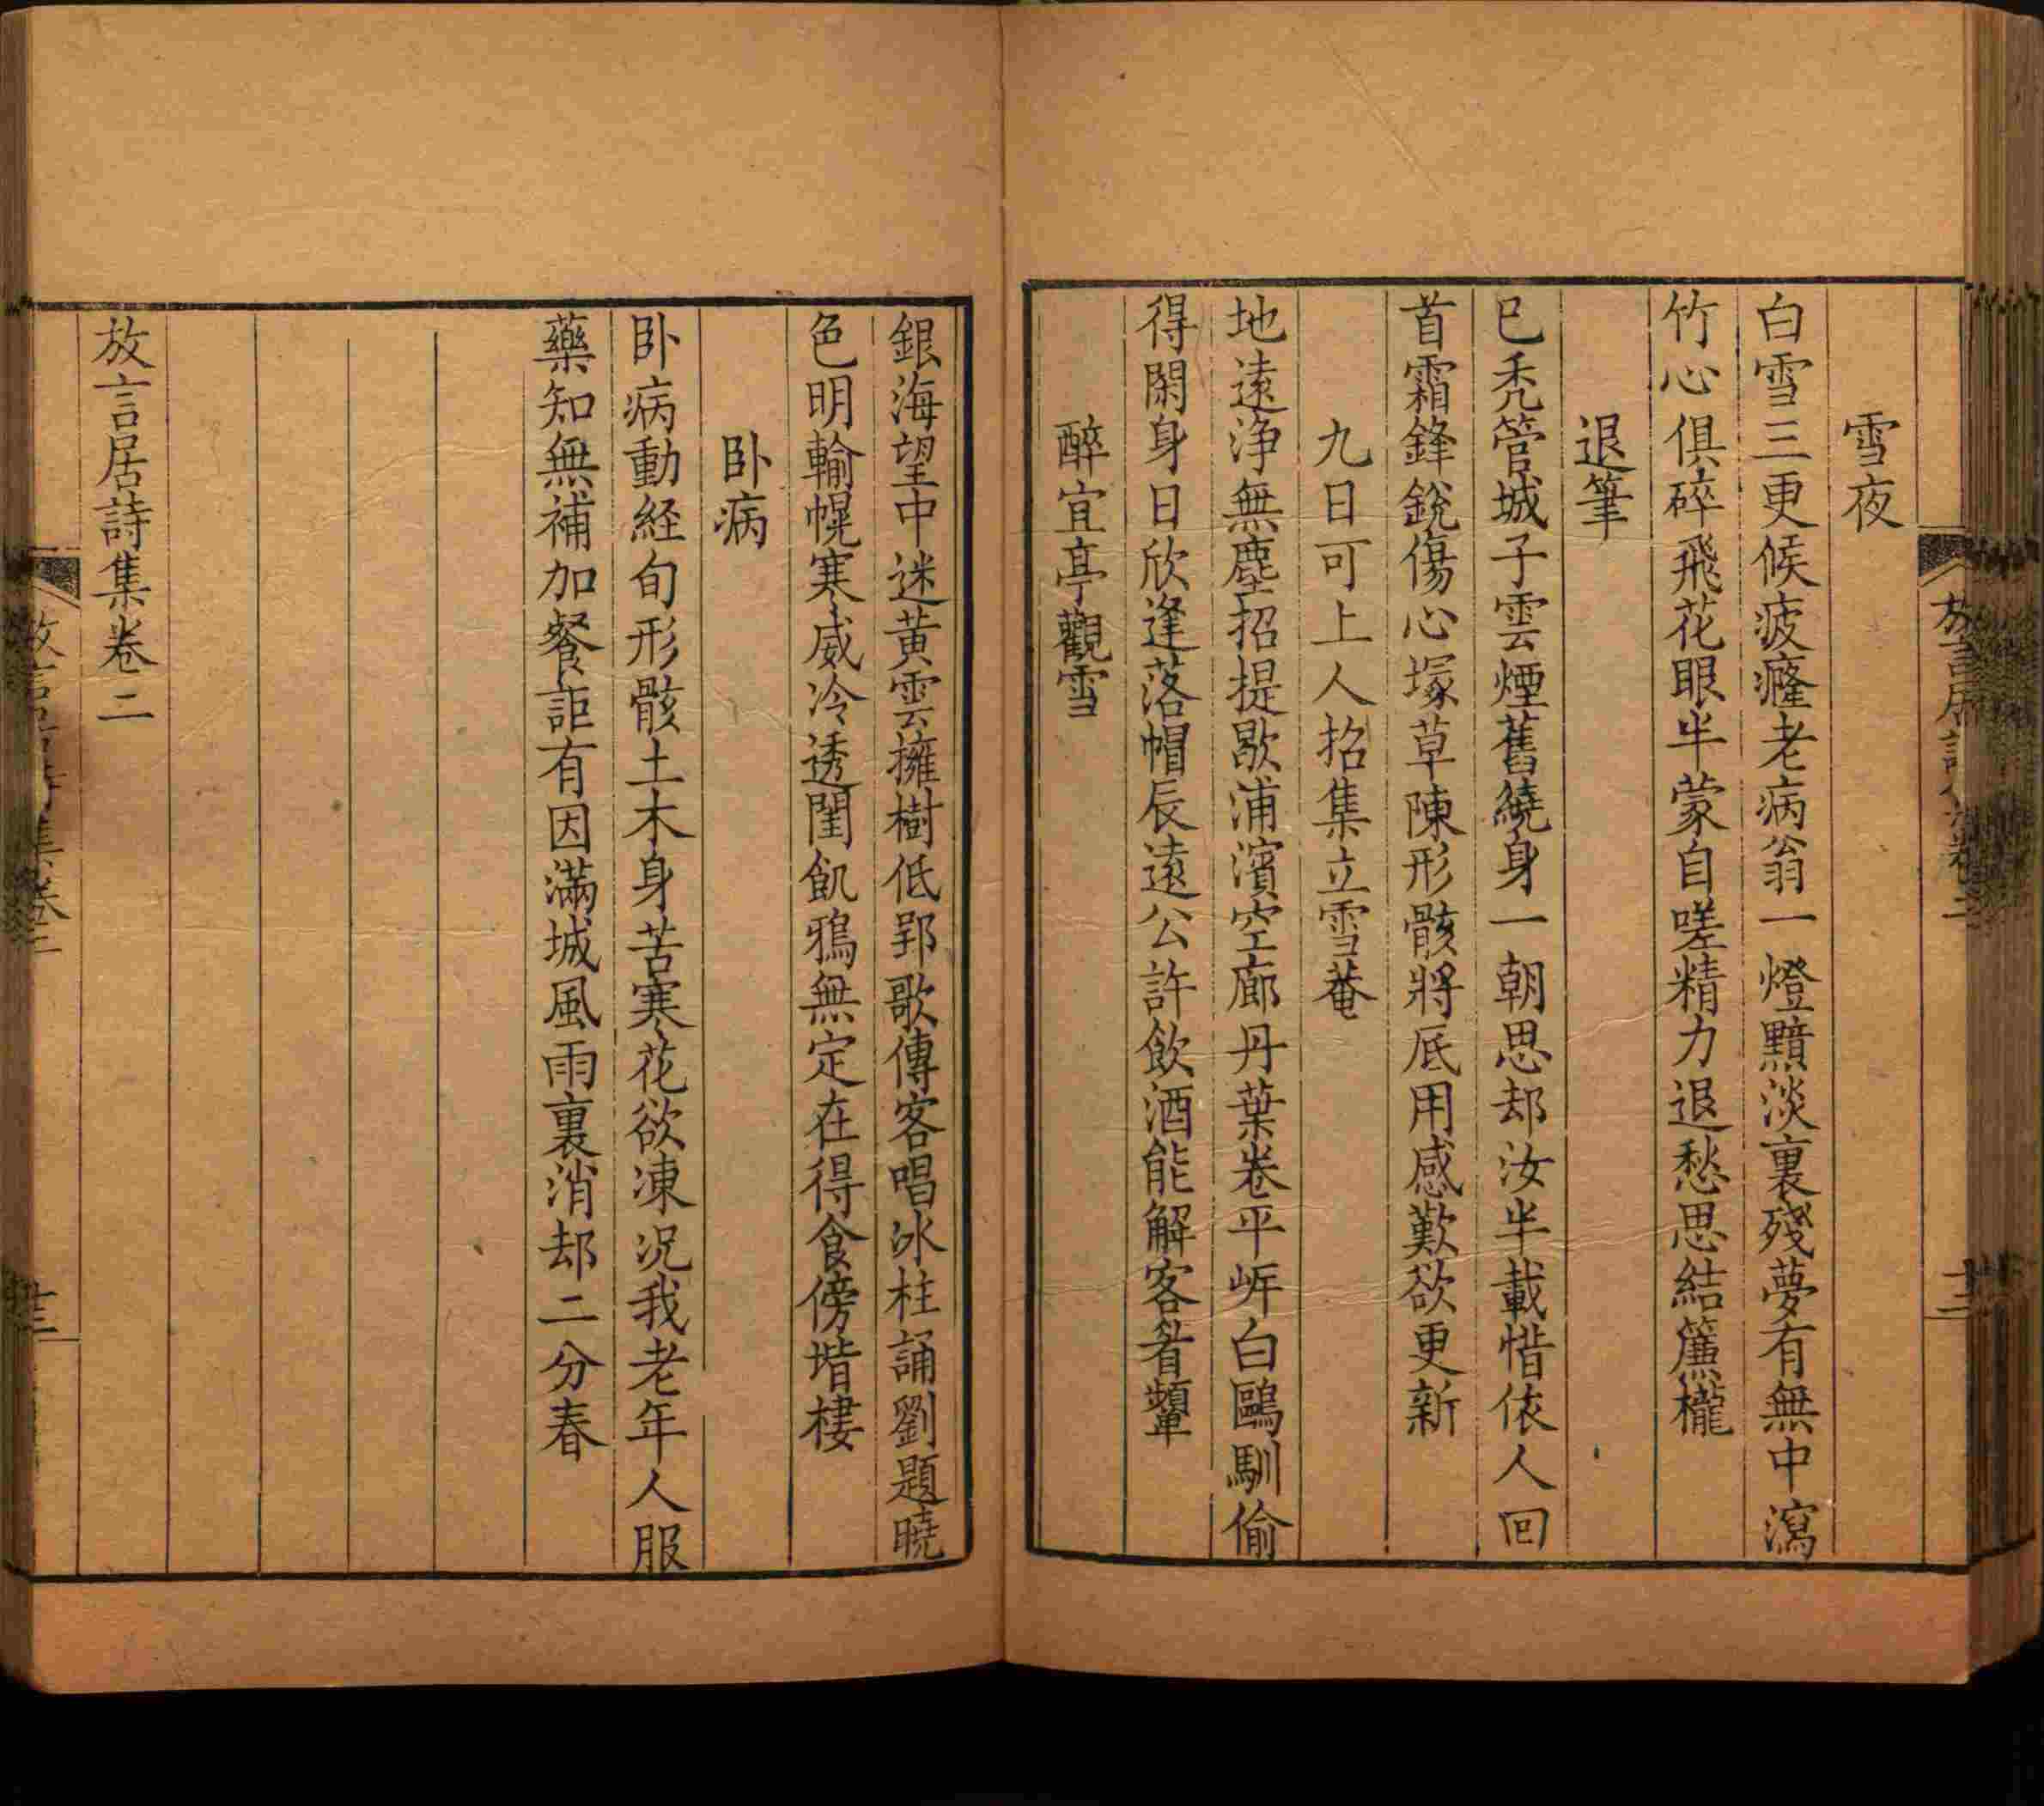 雪夜
白雪三更候疲癃老病翁一燈黯淡裏殘夢有無中瀉
竹心俱碎飛花眼半蒙自嗟精力退愁思結簾櫳
退筆
已禿管城子雲煙舊繞身一朝思却汝半載惜依人回
首霜鋒銳傷心塚草陳形骸將底用感歎欲更新
九日可上人招集立雪菴
地遠浄無塵招提歇浦濱空廊丹葉卷平㟁白鷗馴偷
得閑身日欣逢落帽辰遠公許飲酒能解客眉顰
醉宜亭觀雪
銀海望中迷黄雲擁樹低郢歌傳客唱冰柱誦劉題曉
色明輸幌寒威冷透閨飢鴉無定在得食傍堦棲
卧病
卧病動経旬形骸土木身苦寒花欲凍況我老年人服
藥知無補加餐詎有因滿城風雨裏消却二分春
放言居詩集卷二
放言居詩集卷二
十三